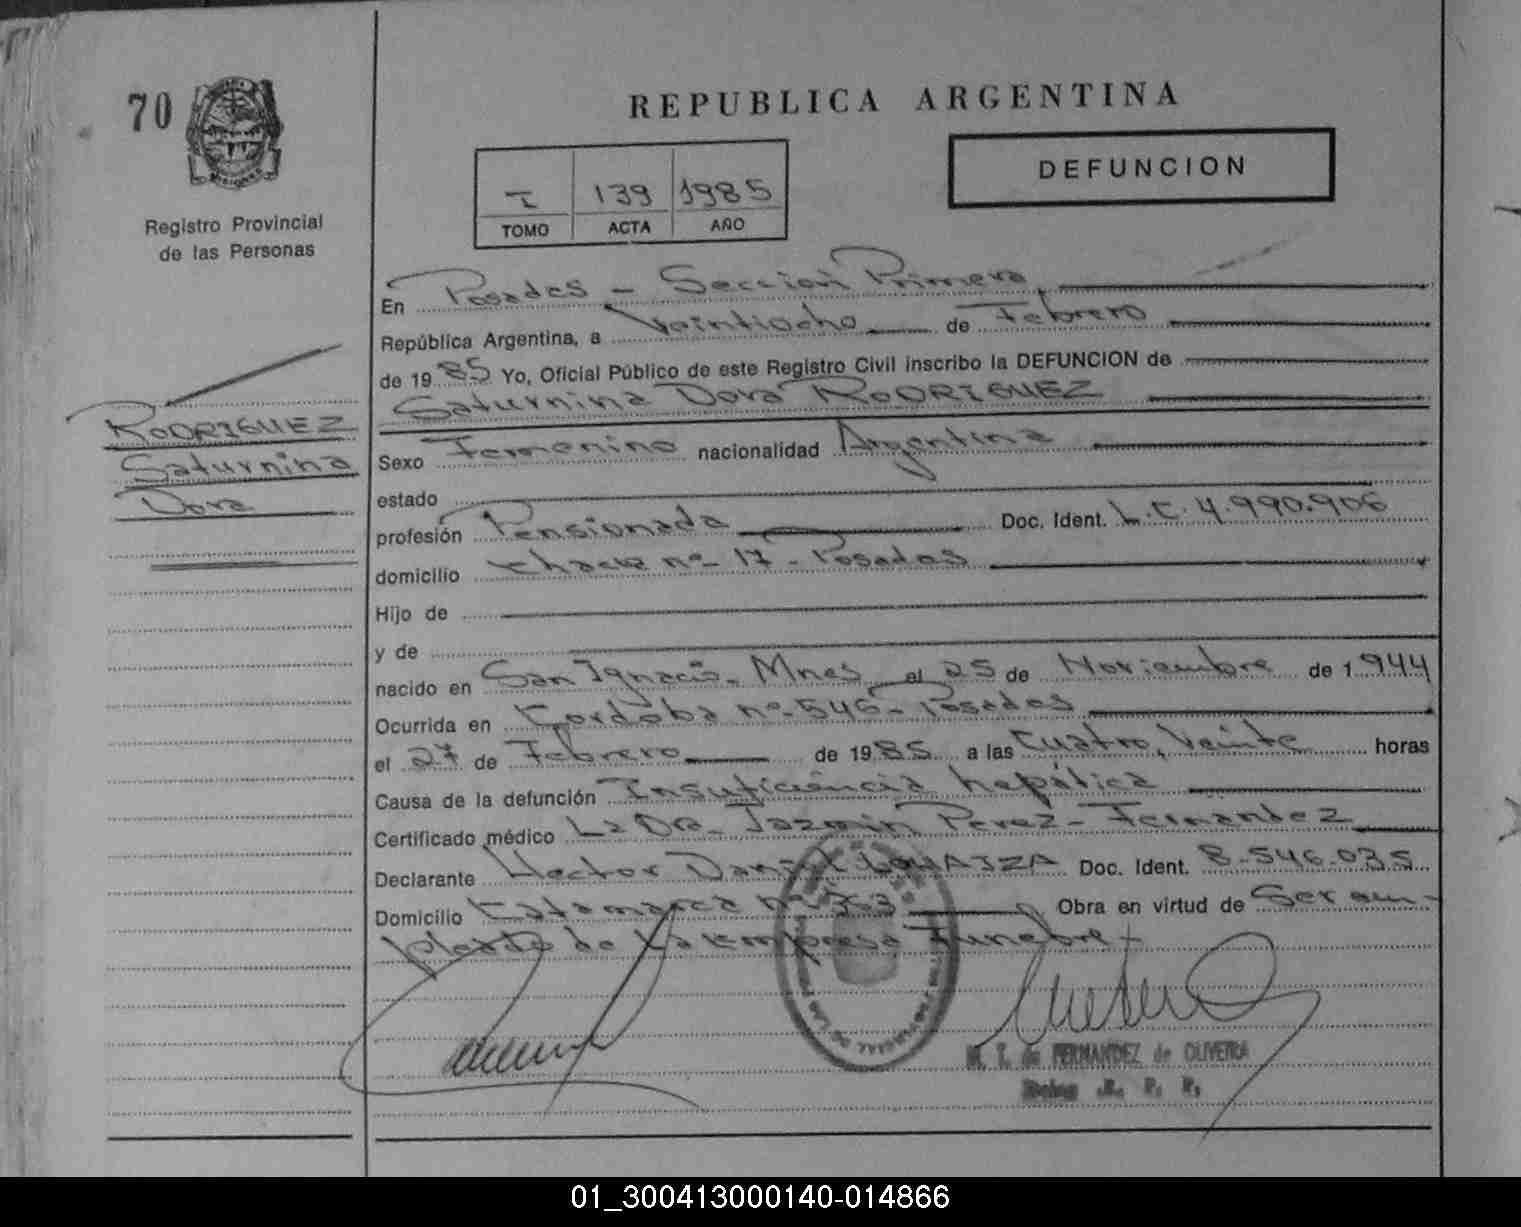 70
REPUBLICA ARGENTINA
DEFUNCION
I 139 1985
TOMO ACTA AÑO
Registro Provincial
de las Personas
RODRIGUEZ
Saturnina
Dora
En Posadas - Sección Primera
República Argentina, a Veintiocho de Febrero
de 1985 Yo, Oficial Público de este Registro Civil inscribo la DEFUNCION de
Saturnina Dora RODRIGUEZ
Sexo Femenino nacionalidad Argentina
estado
profesión Pensionada Doc. Ident. L.C. 4.990.906
domicilio Chacra nº 17 - Posadas
Hijo de
y de
nacido en San Ignacio - Mnes el 25 de Noviembre de 1.944
Ocurrida en Cordoba nº 546 - Posadas
el 27 de Febrero de 1985 a las Cuatro, Veinte horas
Causa de la defunción Insuficiencia hepática
Certificado médico La Dra. Jazmin Perez - Fernandez
Declarante Hector Daniel LOHAIZA Doc. Ident. 8.546.035
Domicilio Catamarca nº Obra en virtud de Ser em-
pleado de la Empresa Funebre -
M. T. de FERNANDEZ de OLIVEIRA
R. P. P.
01_300413000140-014866